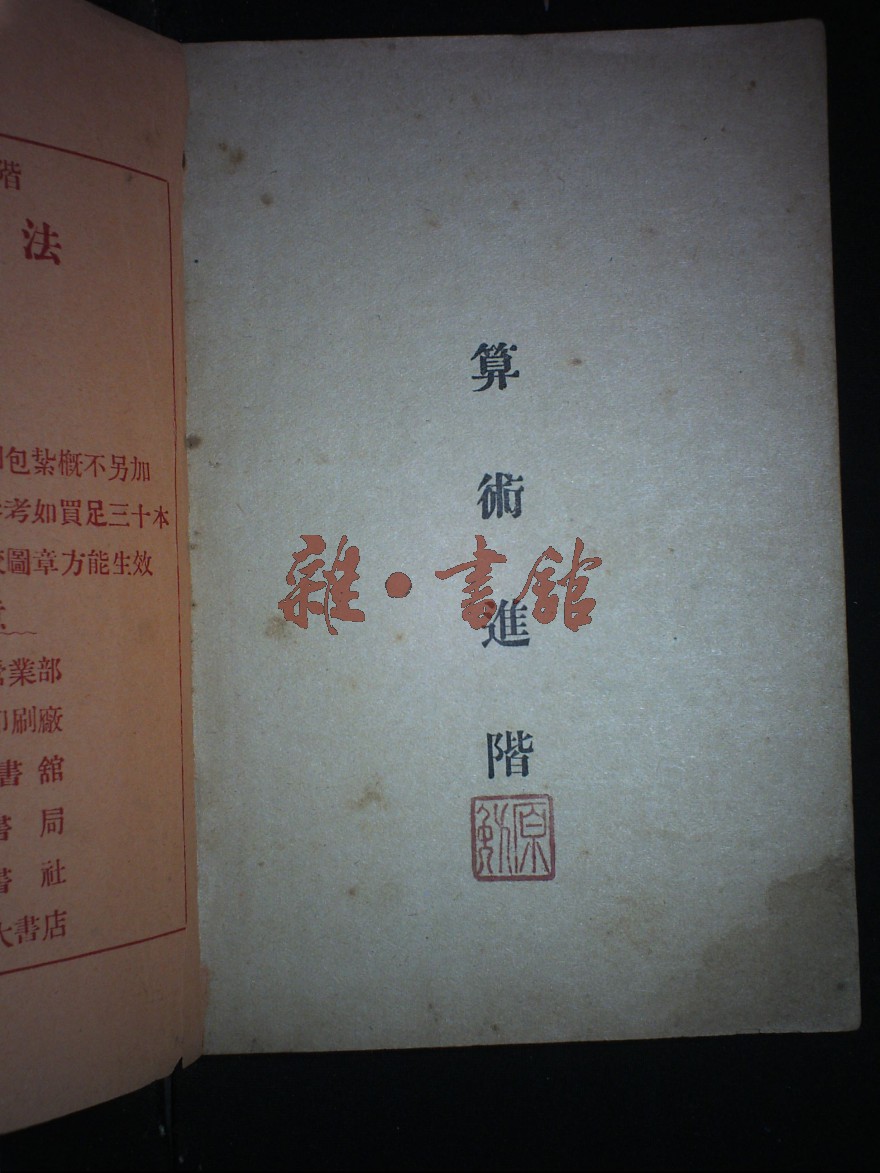 階
法
包紮概不另加
考如買足三十本
圖章方能生效
業部
印刷廠
書舘
局
社
大書店
算術進階
雜·書舘